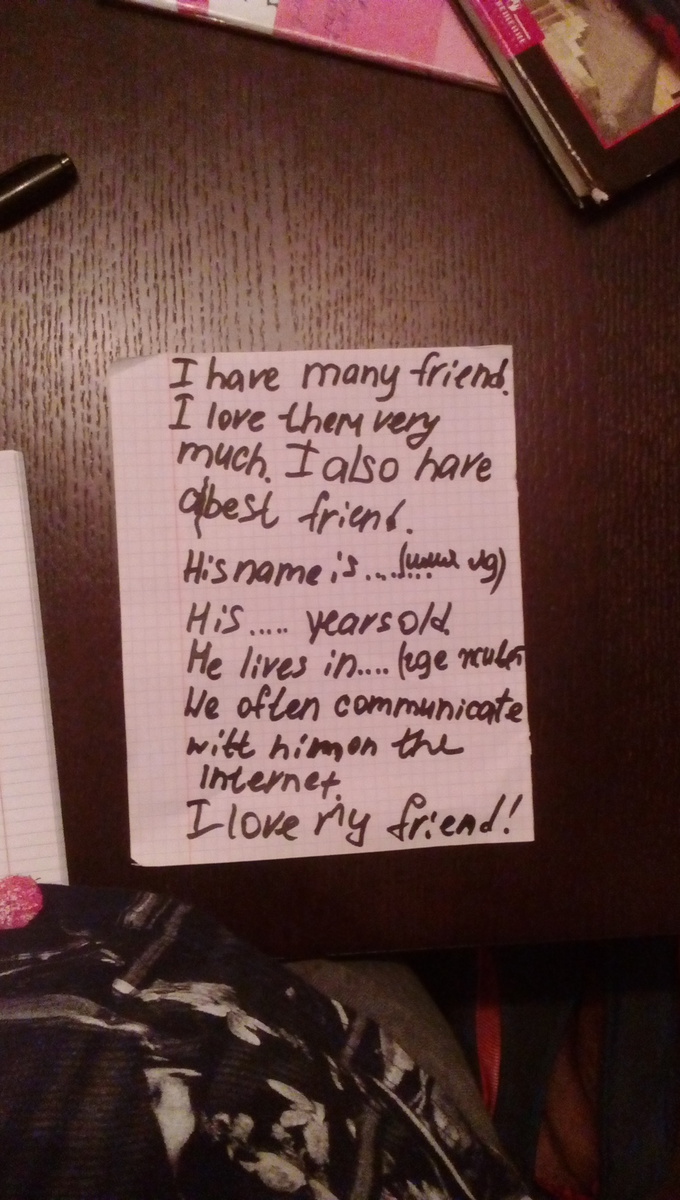 I have many friend.
I love them very
much. I also have
a best friend.
His name is.......
His..... years old.
He lives in.... (где живёт
We often communicate
witt him on the
Internet.
I love my friend!